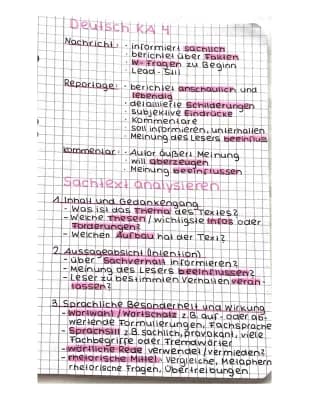 Deutsch KA 4
Nachricht: · informiert sachlich
· berichtet über Fakten
· W-Fragen zu Beginn
· Lead-Stil
Reportage: · berichtet anschaulich und
lebendig
· detaillierte Schilderungen
· subjektive Eindrücke
· Kommentare
· soll informieren, unterhalten
· Meinung des Lesers beeinflus
Kommentar: · Autor äußert Meinung
· will überzeugen
· Meinung beeinflussen
Sachtext analysieren
1. Inhalt und Gedankengang
- Was ist das Thema des Textes?
- Welche Thesen/wichtigste Infos oder
Forderungen?
- Welchen Aufbau hat der Text?
2. Aussageabsicht (Intention)
- über Sachverhalt informieren?
- Meinung des Lesers beeinflussen?
- Leser zu bestimmten Verhalten veran-
lassen?
3. Sprachliche Besonderheit und Wirkung
- Wortwahl/Wortschatz z.B. auf- oder ab-
wertende Formulierungen, Fachsprache
- Sprachstil z.B. sachlich, provokant, viele
Fachbegriffe oder Fremdwörter
- wörtliche Rede verwendet/vermieden?
- rhetorische Mittel: Vergleiche, Metaphern
rhetorische Fragen, Übertreibungen